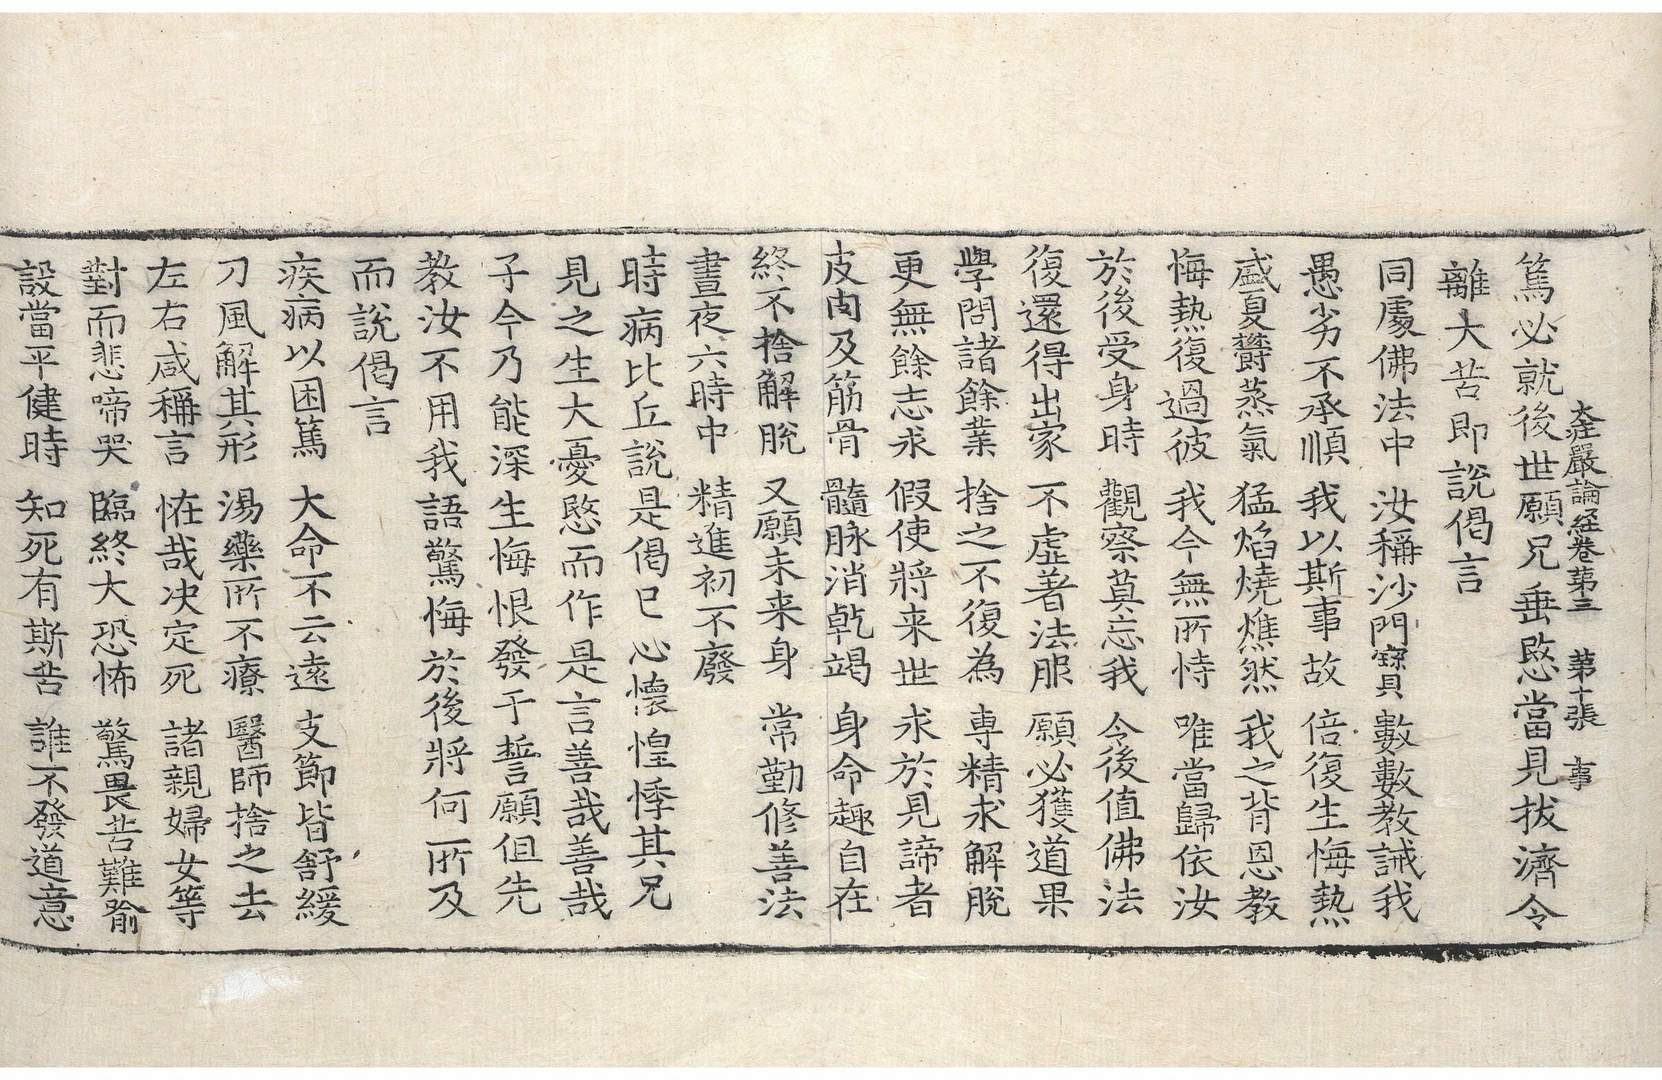 大莊嚴論經卷第三 第十張 事
篤必就後世願兄垂愍當見拔濟令
離大苦即說偈言
同處佛法中 汝稱沙門寶 數數教誡我
愚劣不承順 我以斯事故 倍復生悔熱
盛夏欝蒸氣 猛焰燒燋然 我之背恩教
悔熱復過彼 我今無所恃 唯當歸依汝
於後受身時 觀察莫忘我 令後值佛法
復還得出家 不虛著法服 願必獲道果
學問諸餘業 捨之不復為 專精求解脫
更無餘志求 假使將来世 求於見諦者
皮肉及筋骨 髓脉消乾竭 身命趣自在
終不捨解脫 又願未来身 常勤修善法
晝夜六時中 精進初不廢
時病比丘說是偈已心懷惶悸其兄
見之生大憂愍而作是言善哉善哉
子今乃能深生悔恨發于誓願但先
教汝不用我語驚悔於後將何所及
而說偈言
疾病以困篤 大命不云遠 支節皆舒緩
刀風解其形 湯藥所不療 醫師捨之去
左右咸稱言 恠哉決定死 諸親婦女等
對而悲啼哭 臨終大恐怖 驚畏苦難喻
設當平健時 知死有斯苦 誰不發道意